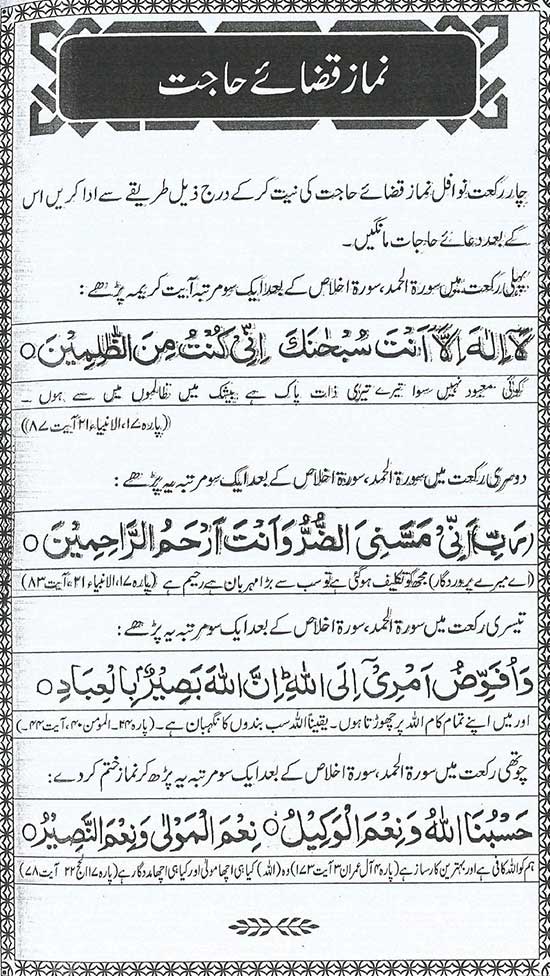 نماز قضائے حاجت
چار رکعت نوافل نماز قضائے حاجت کی نیت کر کے درج ذیل طریقے سے ادا کریں اس
کے بعد دعائے حاجات مانگیں۔
پہلی رکعت میں سورۃ الحمد، سورۃ اخلاص کے بعد ایک سو مرتبہ آیت کریمہ پڑھے :
لَآ اِلٰهَ اِلَّآ اَنْتَ سُبْحٰنَكَ اِنِّیْ كُنْتُ مِنَ الظّٰلِمِیْنَ ○
کوئی معبود نہیں سوا تیرے تیری ذات پاک ہے بیشک میں ظالموں میں سے ہوں ۔
((پارہ ۱۷، الانبیاء ۲۱ آیت ۸۷))
دوسری رکعت میں سورۃ الحمد، سورۃ اخلاص کے بعد ایک سو مرتبہ یہ پڑھے :
(رَبِّ) اَنِّیْ مَسَّنِیَ الضُّرُّ وَاَنْتَ اَرْحَمُ الرَّاحِمِیْنَ ○
(اے میرے پروردگار) مجھ کو تکلیف ہو گئی ہے تو سب سے بڑا مہربان ہے رحیم ہے (پارہ ۱۷، الانبیاء ۲۱، آیت ۸۳)
تیسری رکعت میں سورۃ الحمد، سورۃ اخلاص کے بعد ایک سو مرتبہ یہ پڑھے :
وَاُفَوِّضُ اَمْرِیْٓ اِلَی اللّٰهِ ؕ اِنَّ اللّٰهَ بَصِیْرٌۢ بِالْعِبَادِ ○
اور میں اپنے تمام کام اللہ پر چھوڑتا ہوں۔ یقیناً اللہ سب بندوں کا نگہبان ہے۔ (پارہ ۲۴۔ المؤمن ۴۰، آیت ۴۴۔)
چوتھی رکعت میں سورۃ الحمد، سورۃ اخلاص کے بعد ایک سو مرتبہ یہ پڑھ کر نماز ختم کر دے :
حَسْبُنَا اللّٰهُ وَنِعْمَ الْوَكِیْلُ ○ نِعْمَ الْمَوْلٰی وَنِعْمَ النَّصِیْرُ ○
ہم کو اللہ کافی ہے اور بہترین کارساز ہے (پارہ ۴ آل عمران ۳ آیت ۱۷۳) وہ (اللہ) کیا ہی اچھا مولیٰ اور کیا ہی اچھا مددگار ہے (پارہ ۱۷ الحج ۲۲ آیت ۷۸)